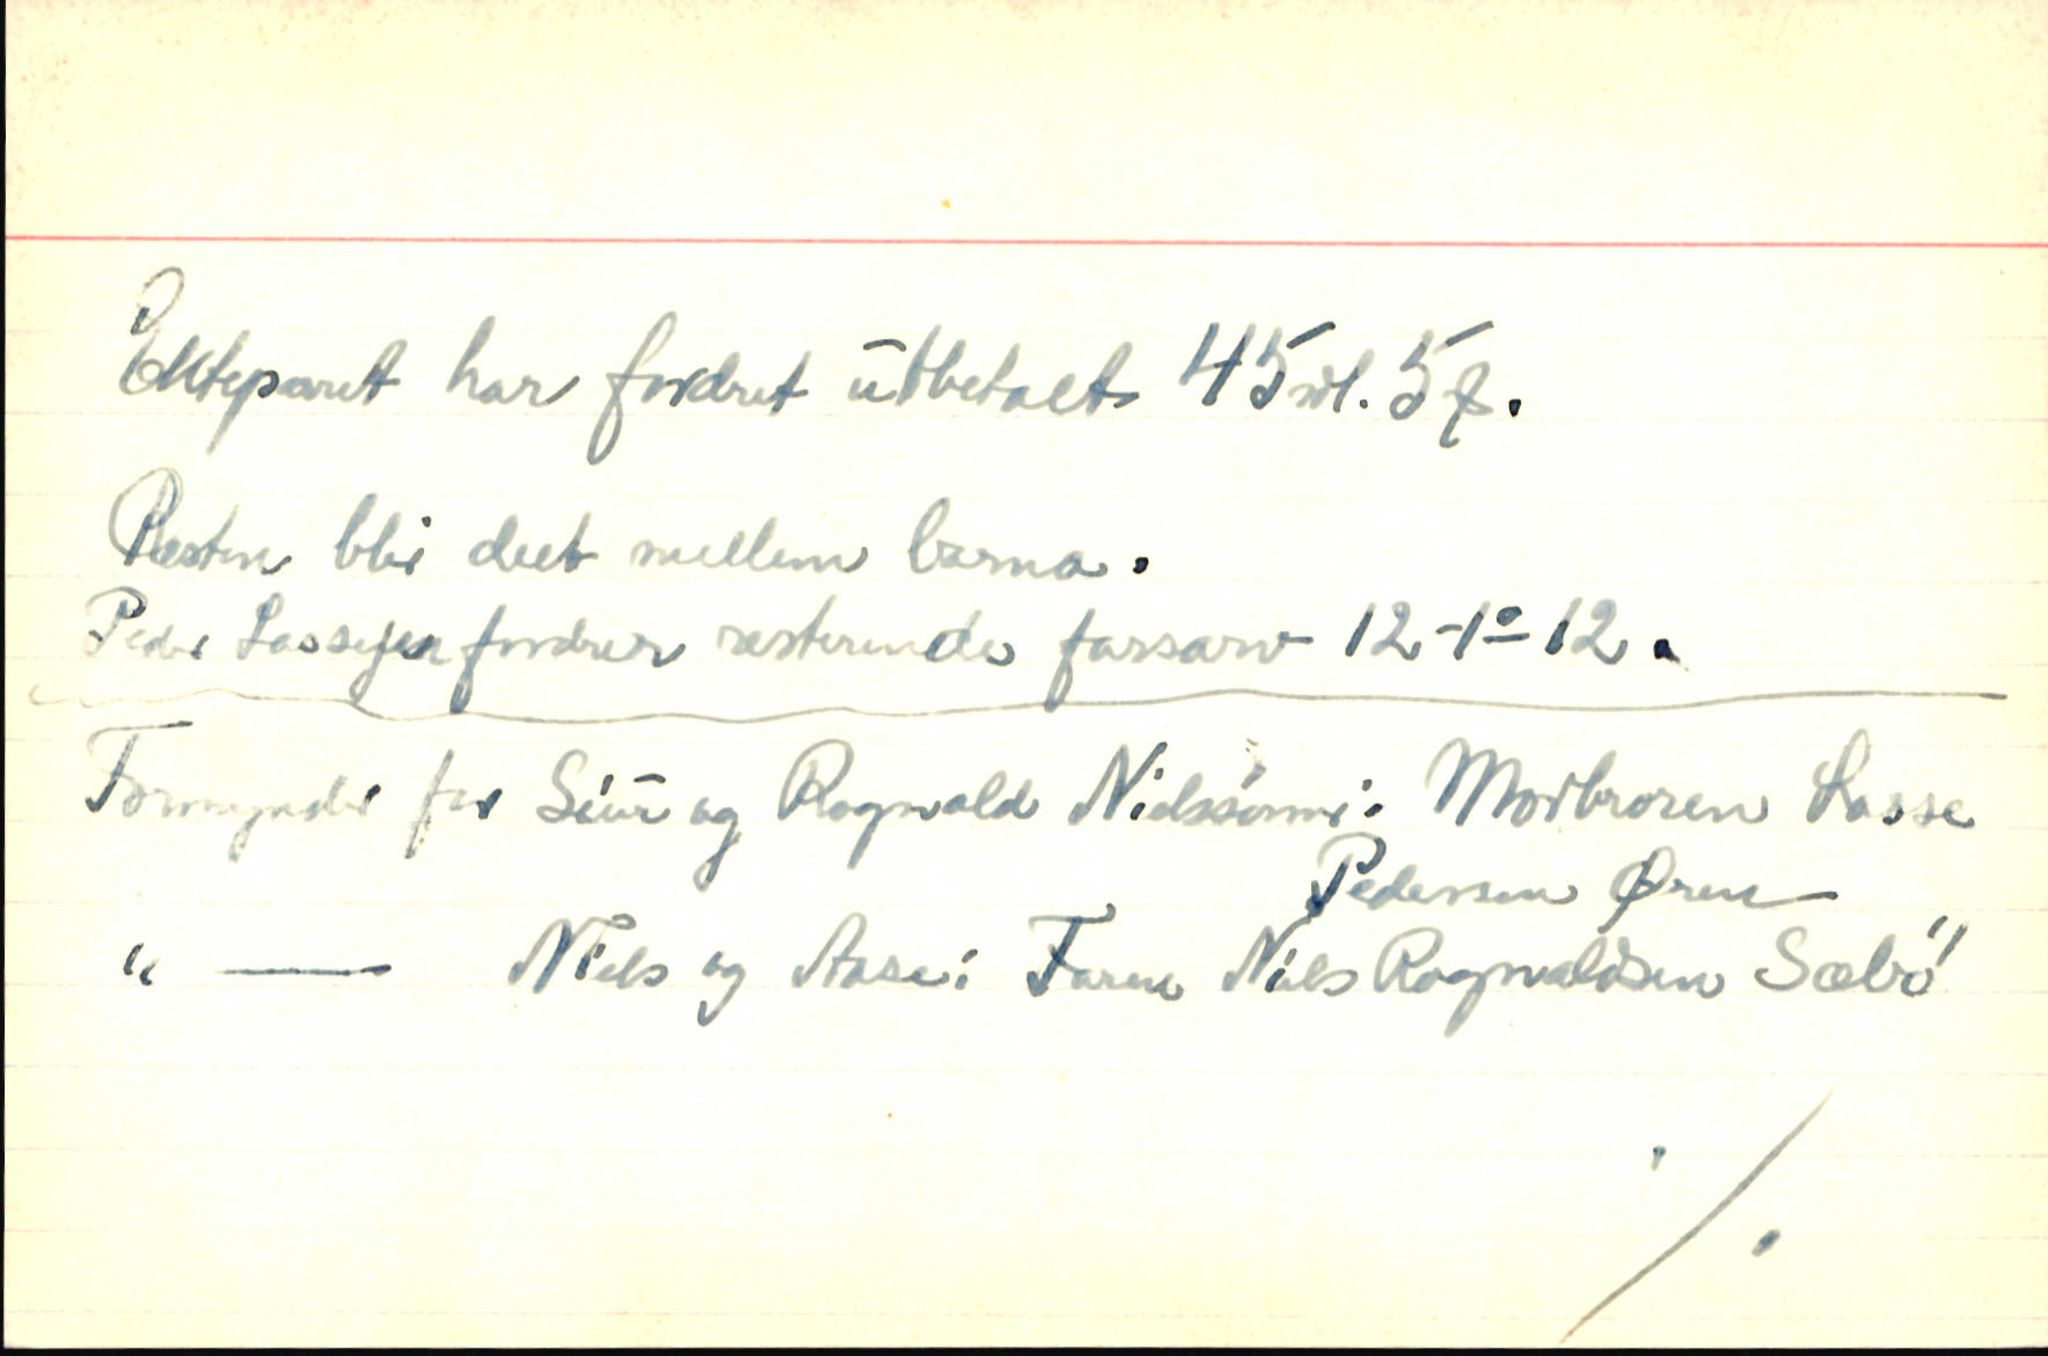 Ekteparet har fordret ūtbetalt 45 rdl. 5 β.
Resten blir delt mellem barna.
Peder Lassesen fordrer resterende farsarv 12-1º-12.
Formynder for Siūr og Rognvald Nielssønner: Morbroren Lasse
Pedersen Øren
" — Niels og Aase: Faren Niels Rognvaldsen Sæbö"
./.